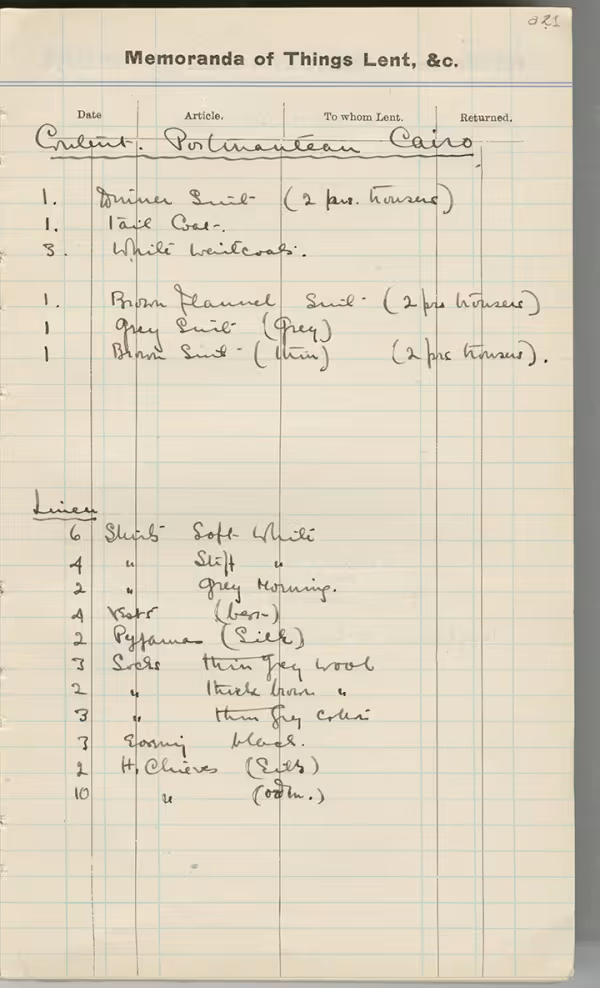 221
Memoranda of Things Lent, &c.
Date Article. To whom Lent. Returned.
Content. Portmanteau Cairo
1. Dinner Suit (2 prs. trousers)
1. Tail Coat.
3. White Waistcoats.
1. Brown Flannel Suit (2 prs trousers)
1 Grey Suit (Grey)
1 Brown Suit (thin) (2 prs trousers).
Linen
6 Shirts Soft White
4 " Stiff "
2 " Grey Morning.
4 Vests (best)
2 Pyjamas (Silk)
3 Socks thin grey wool
2 " thick brown "
3 " thin Grey cotton
3 Evening black.
2 H. Chieves (Silk)
10 " (ordin.)